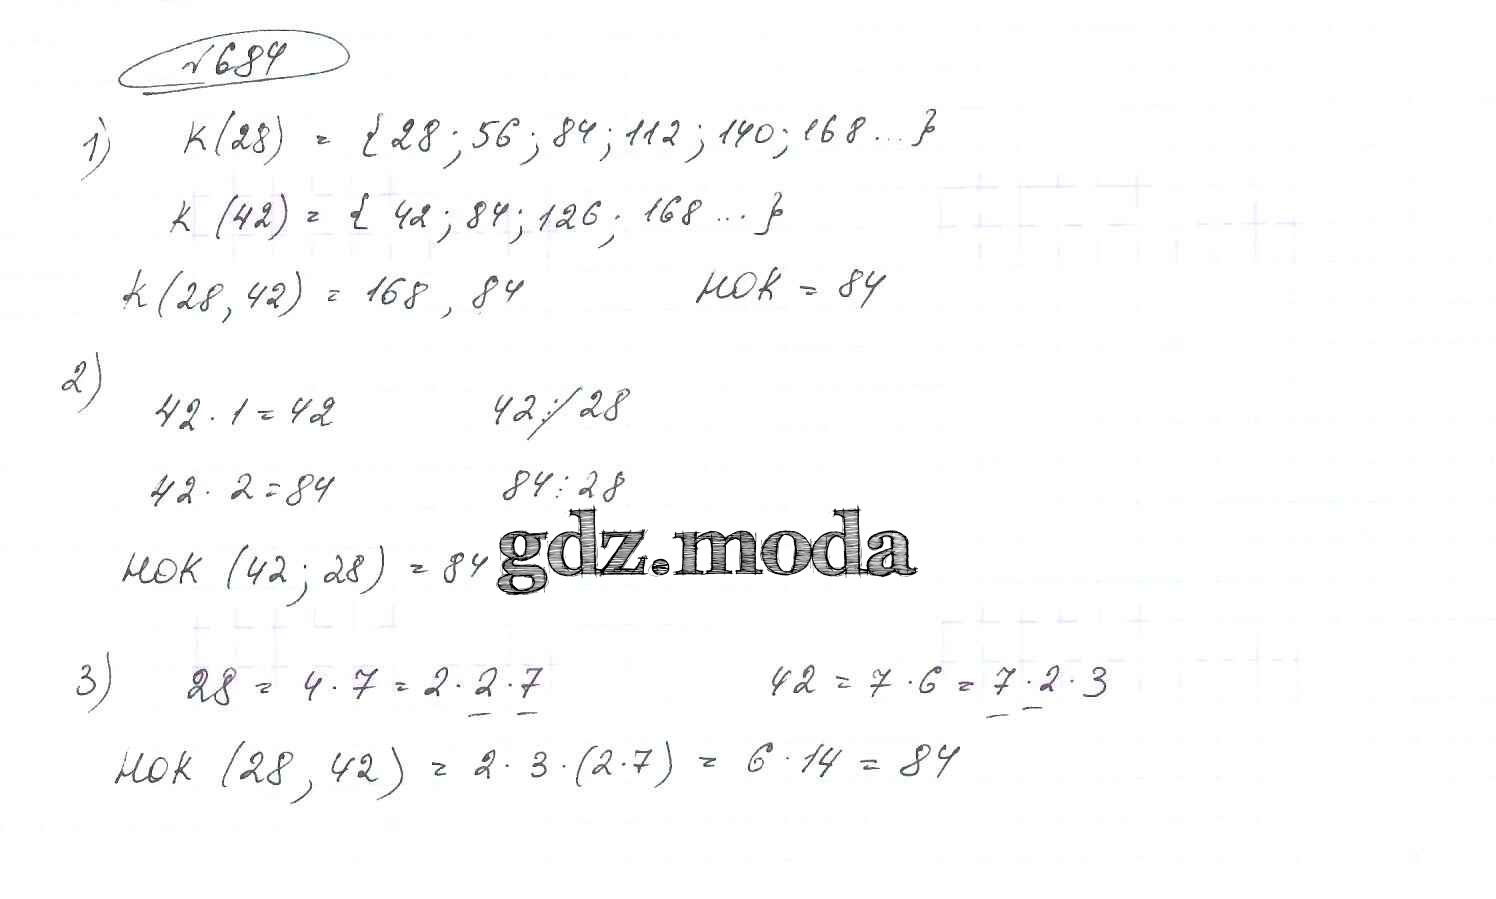 √684
1) K(28) = {28; 56; 84; 112; 140; 168 ... }
K (42) = { 42; 84; 126; 168 ... }
K(28, 42) = 168, 84 НОК = 84
2)
42 · 1 = 42 42 ⋮̸ 28
42 · 2 = 84 84 ⋮ 28
НОК (42; 28) = 84
gdz.moda
3) 28 = 4 · 7 = 2 · 2 · 7 42 = 7 · 6 = 7 · 2 · 3
НОК (28, 42) = 2 · 3 · (2 · 7) = 6 · 14 = 84